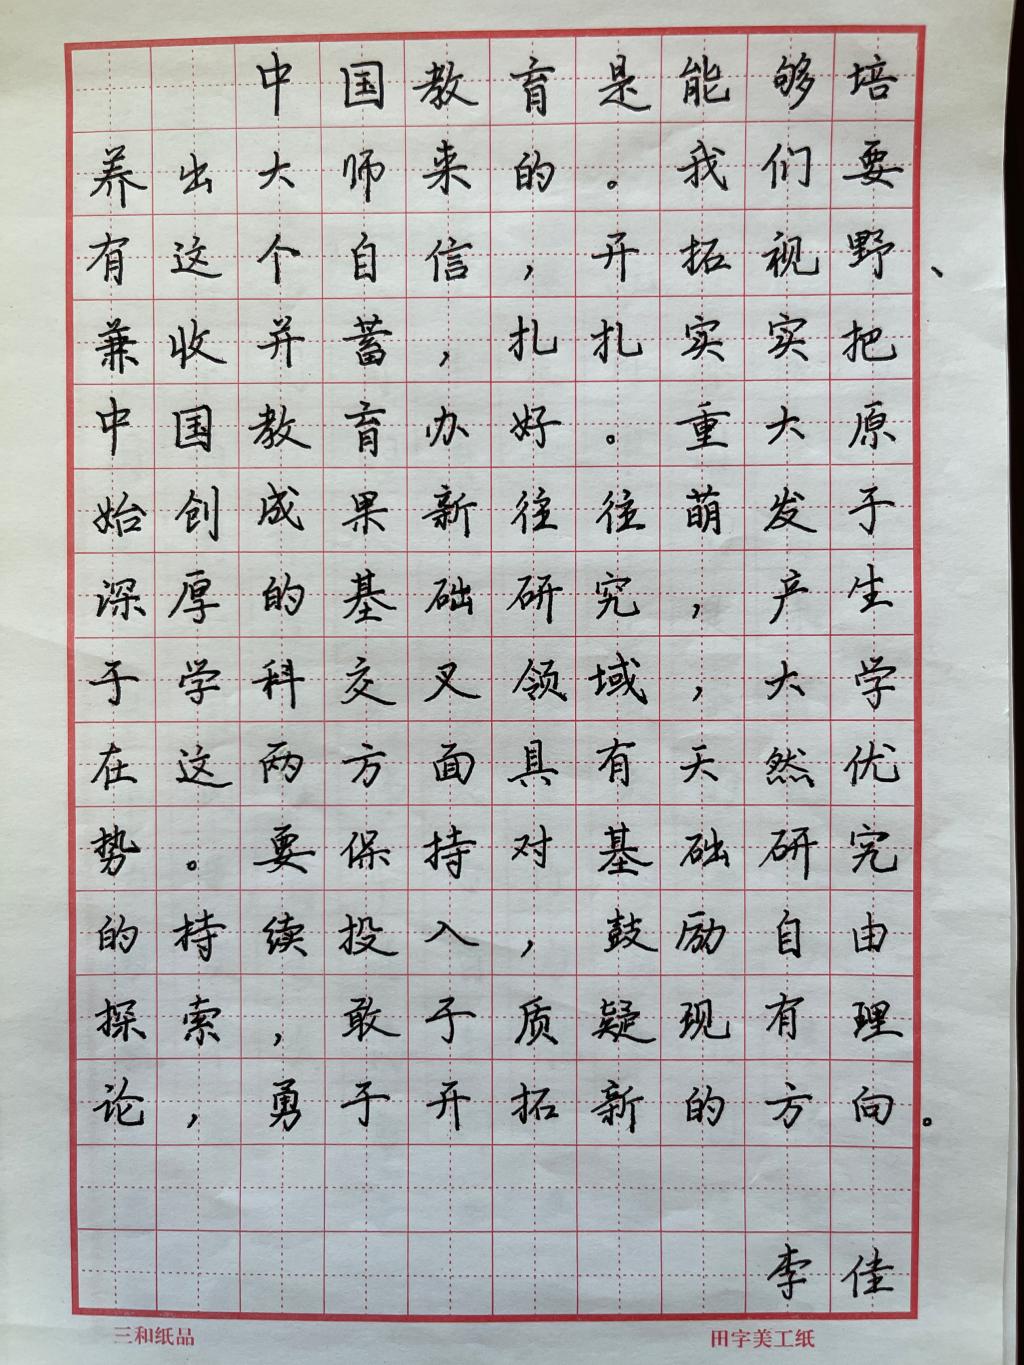 中国教育是能够培
养出大师来的。我们要
有这个自信，开拓视野、
兼收并蓄，扎扎实实把
中国教育办好。重大原
始创成果新往往萌发于
深厚的基础研究，产生
于学科交叉领域，大学
在这两方面具有天然优
势。要保持对基础研究
的持续投入，鼓励自由
探索，敢于质疑现有理
论，勇于开拓新的方向。
李佳
三和纸品
田字美工纸